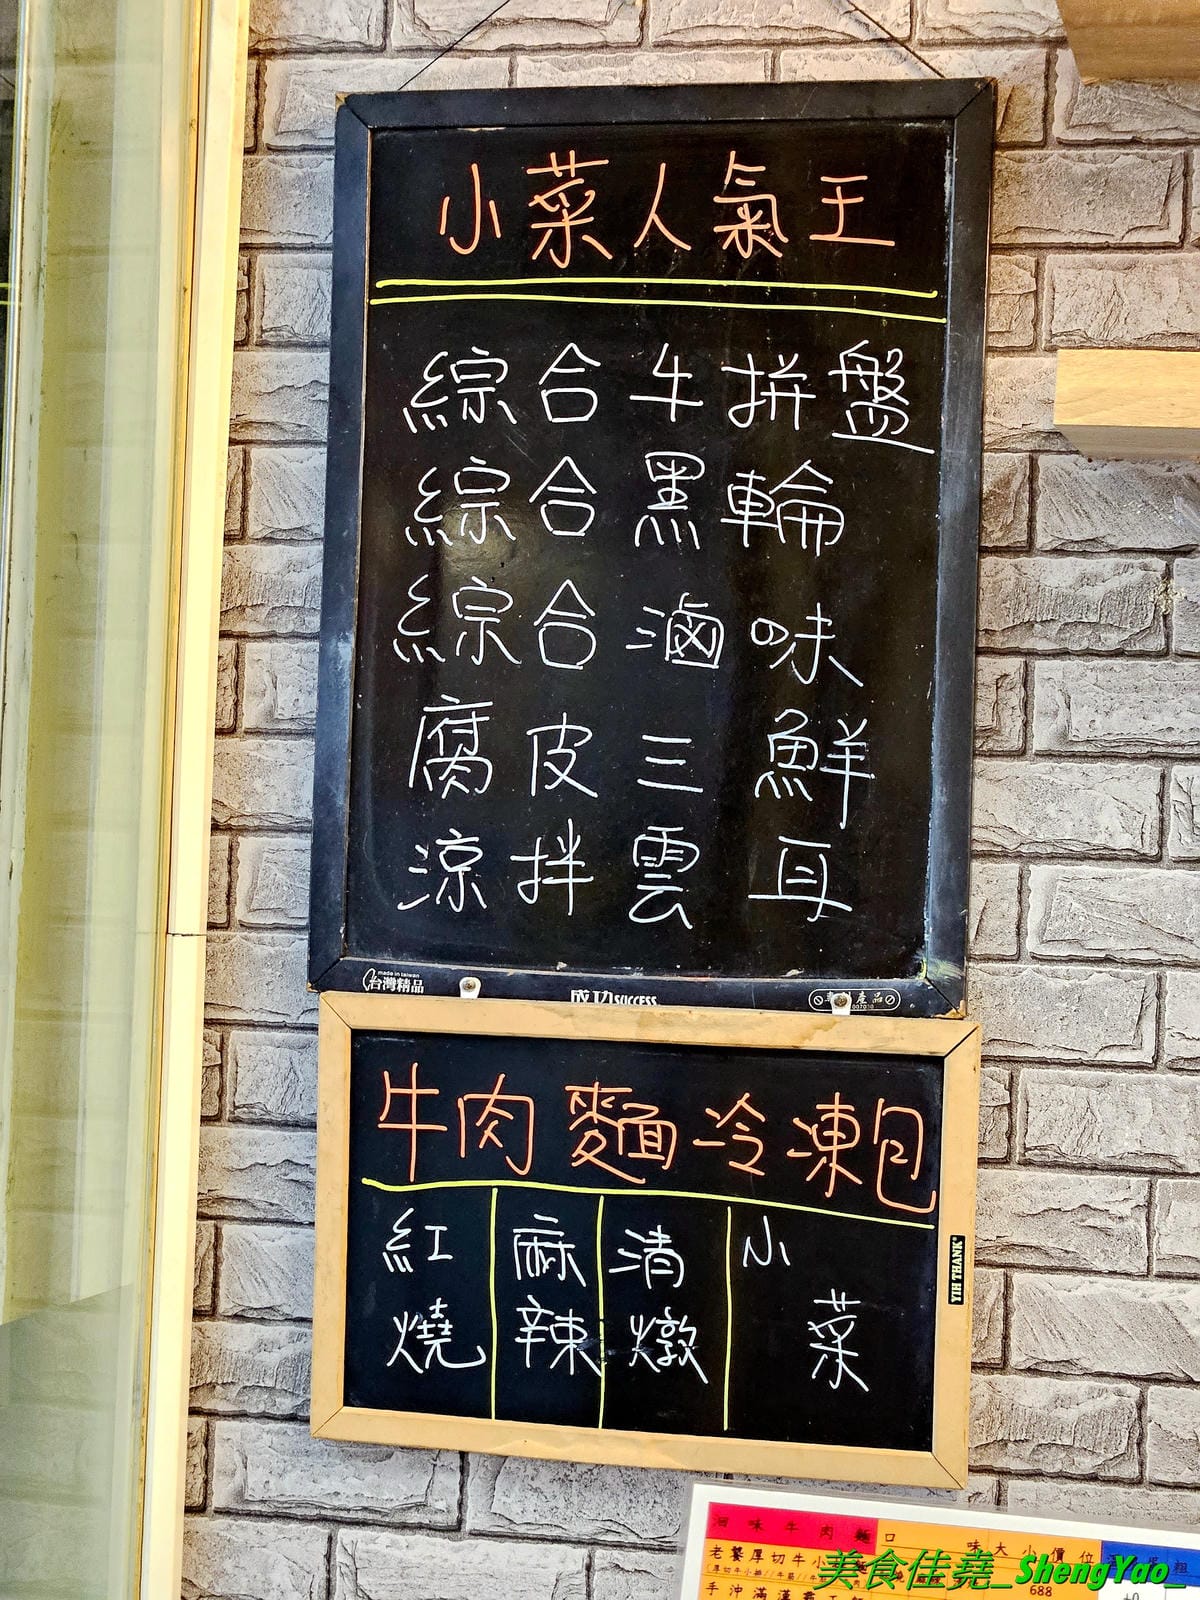 小菜人氣王
綜合牛拼盤
綜合黑輪
綜合滷味
腐皮三鮮
涼拌雲耳
made in taiwan
台灣精品
成功 SUCCESS
產品
牛肉麵冷凍包
紅燒 麻辣 清燉 小菜
YIH THANK
味牛肉麵 口味 大 小 價位
老饕厚切牛小
688
手沖滿漢
美食佳堯_ShengYao_